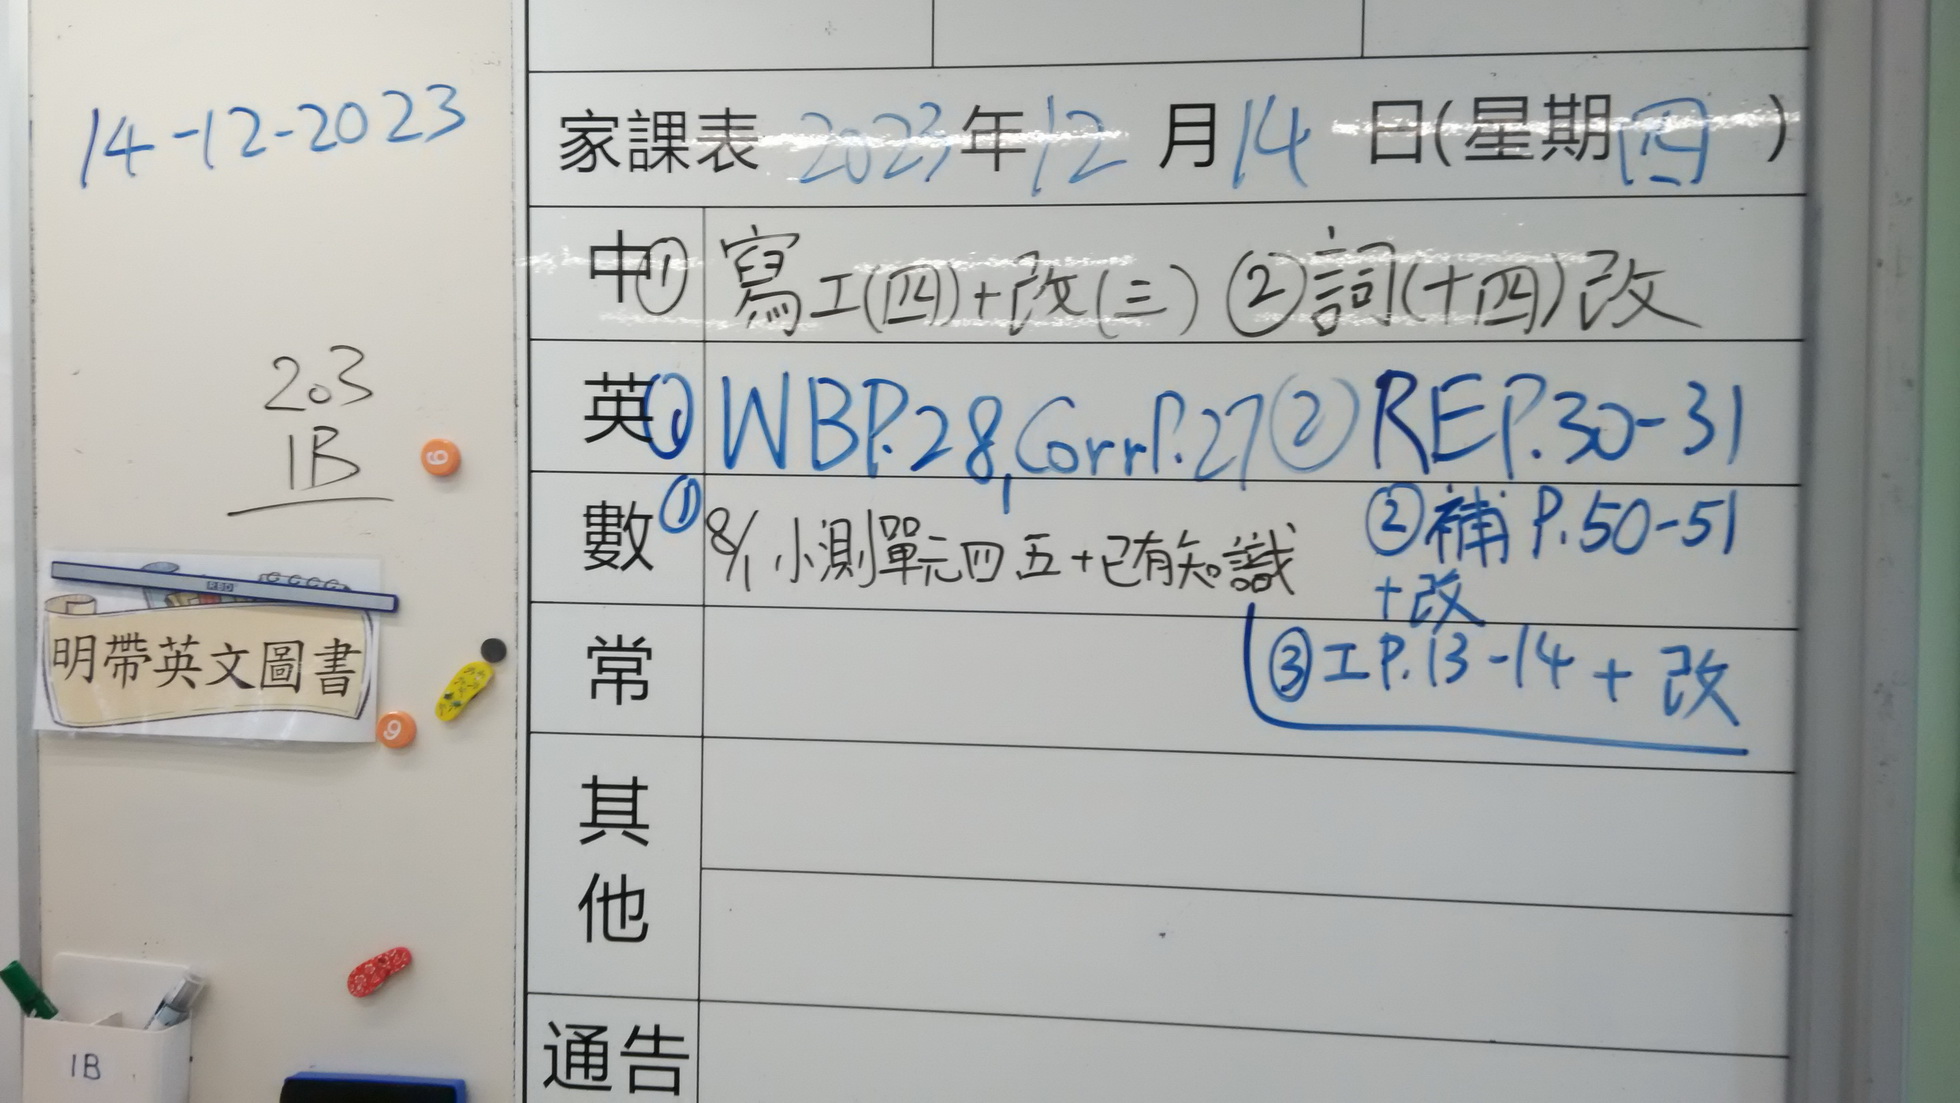 14-12-2023
203
1B
6
明帶英文圖書
9
1B
家課表 2023年12月14日(星期四)
中 ① 寫工(四)+改(三) ②詞(十四)改
英 ① WB P.28, Corr P.27 ② RE P.30-31
數 ① 8/1 小測單元四 五+已有知識 ②補 P.50-51
+改
③工P.13-14 + 改
常
其他
通告